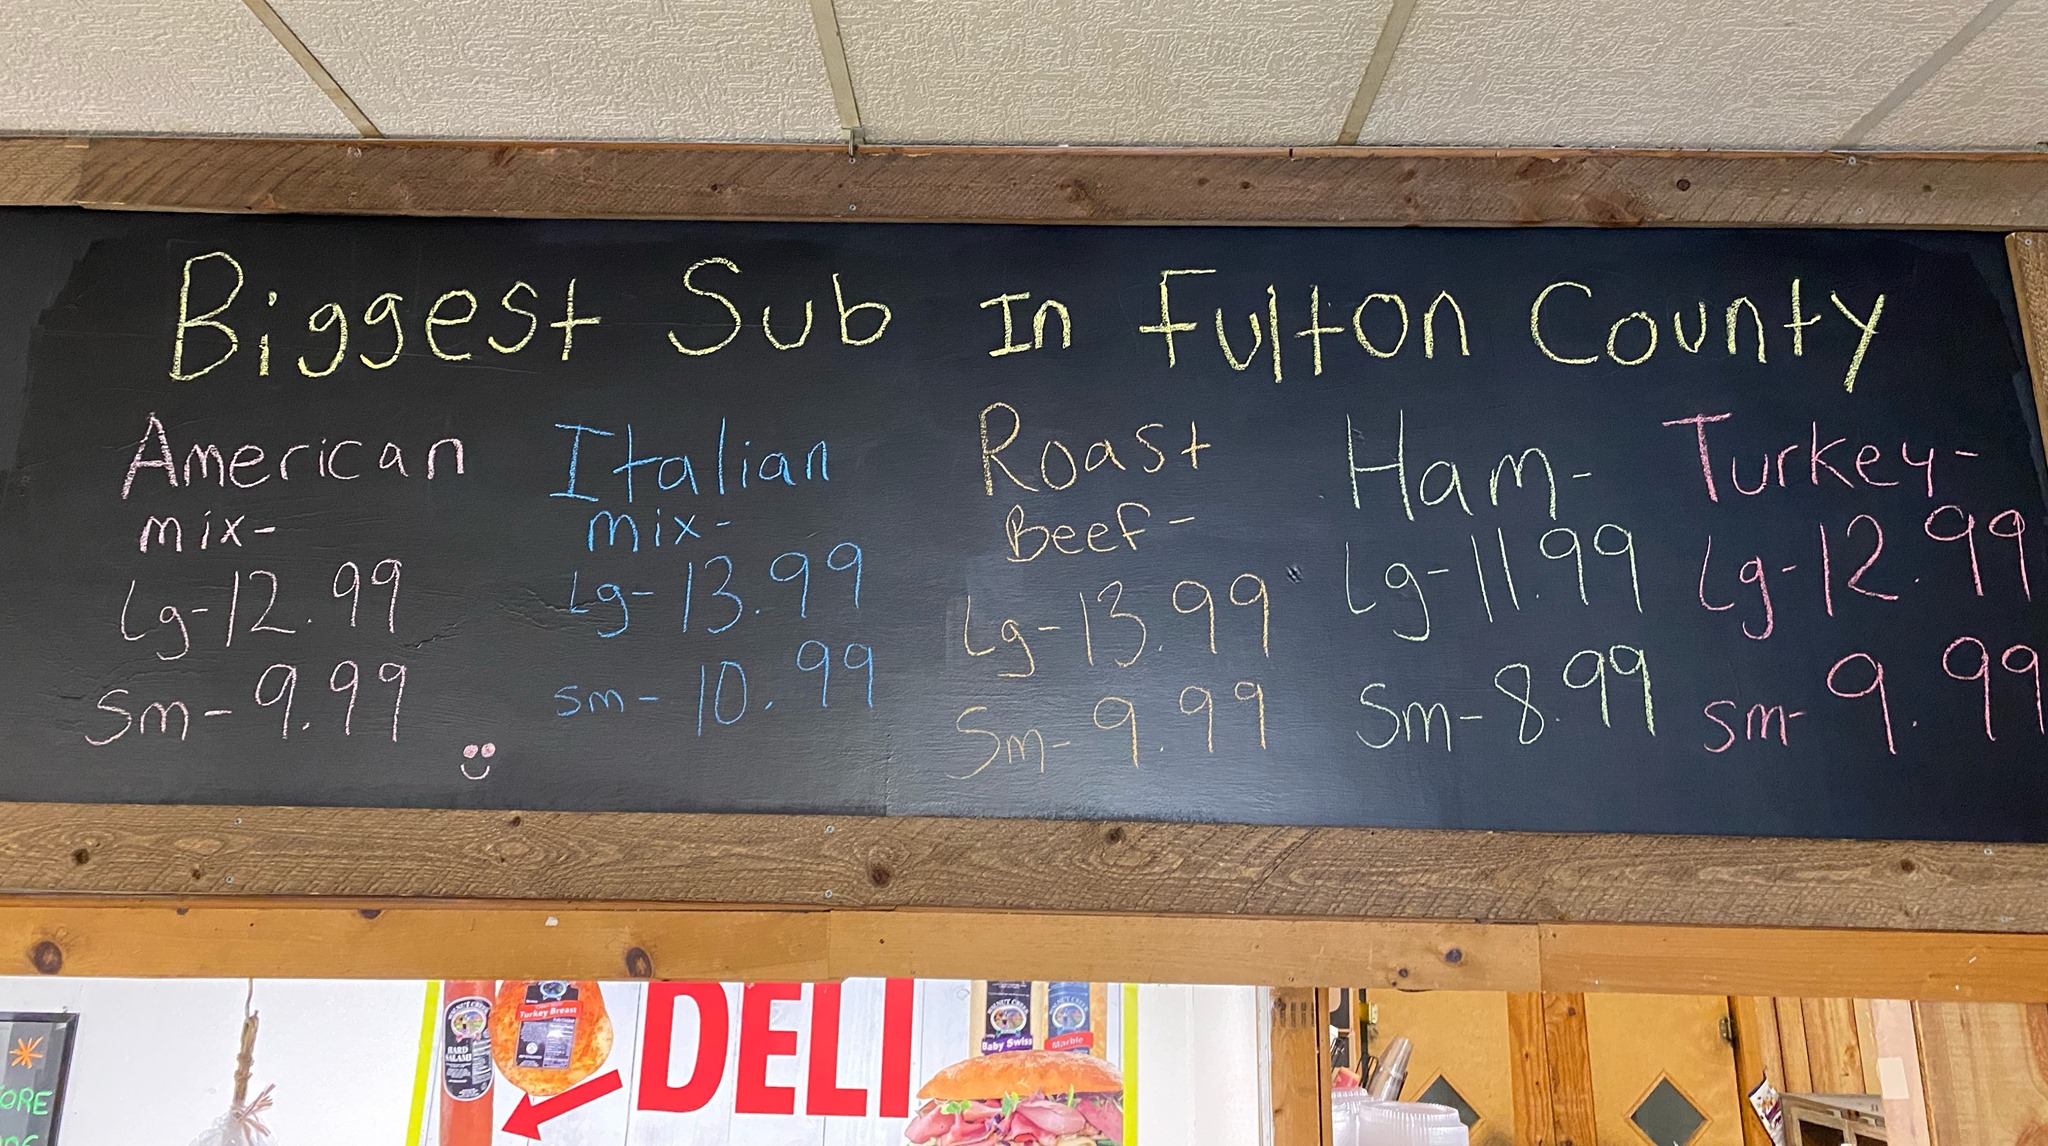 Biggest Sub In Fulton County
American
mix-
Lg-12.99
Sm-9.99
Italian
mix-
Lg-13.99
sm-10.99
Roast
Beef-
Lg-13.99
Sm-9.99
Ham-
Lg-11.99
Sm-8.99
Turkey-
Lg-12.99
sm-9.99
ORE
HARD
SALAMI
Turkey Breast
DELI
Baby Swiss
Marble